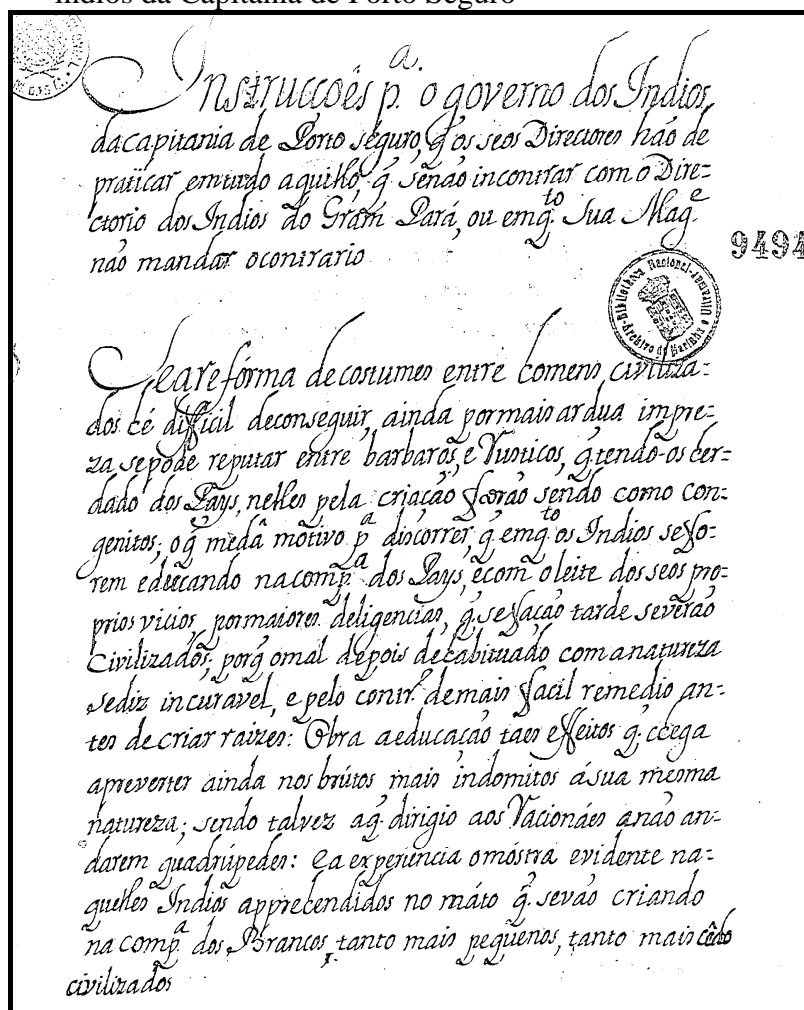 índios da Capitania de Porto Seguro
Instrucções p.ª o governo dos Indios
da capitania de Porto seguro, q̃ os seos Directores hão de
praticar em tudo aquillo, q̃ senão incontrar com o Dire=
ctorio dos Indios do Gram Pará, ou emq.to Sua Mag.e
não mandar o contrario
9494
Bibliotheca Nacional
Archivo de Marinha e Ultramar
Se a refórma de costumes entre homens, civiliza=
dos hé difficil de conseguir, ainda por mais ardua impre=
za se póde reputar entre barbaros, e Rusticos, q̃ tendo-os her=
dado dos Pays, nelles pela criação forão sendo como con=
genitos; o q̃ me dá motivo p.ª discorrer, q̃ emq.to os Indios se fo=
rem edeecando na comp.ª dos Pays, e com o leite dos seos pro=
prios vicios, por maiores deligencias, q̃ se fação tarde severão
Civilizados; porq̃ o mal depois de habituado com a natureza
se diz incuravel, e pelo contr.º de mais facil remedio an=
tes de criar raizes: Obra a educação taes effeitos q̃ chega
a preverter ainda nos brútos mais indomitos á sua mesma
natureza; sendo talvez a q̃ dirigio aos Racionáes a não an=
darem quadrúpedes: E a experiencia o móstra evidente na=
quelles Indios apprehendidos no máto q̃ se vão criando
na comp.ª dos Brancos, tanto mais pequenos, tanto mais cêdo
civilizados